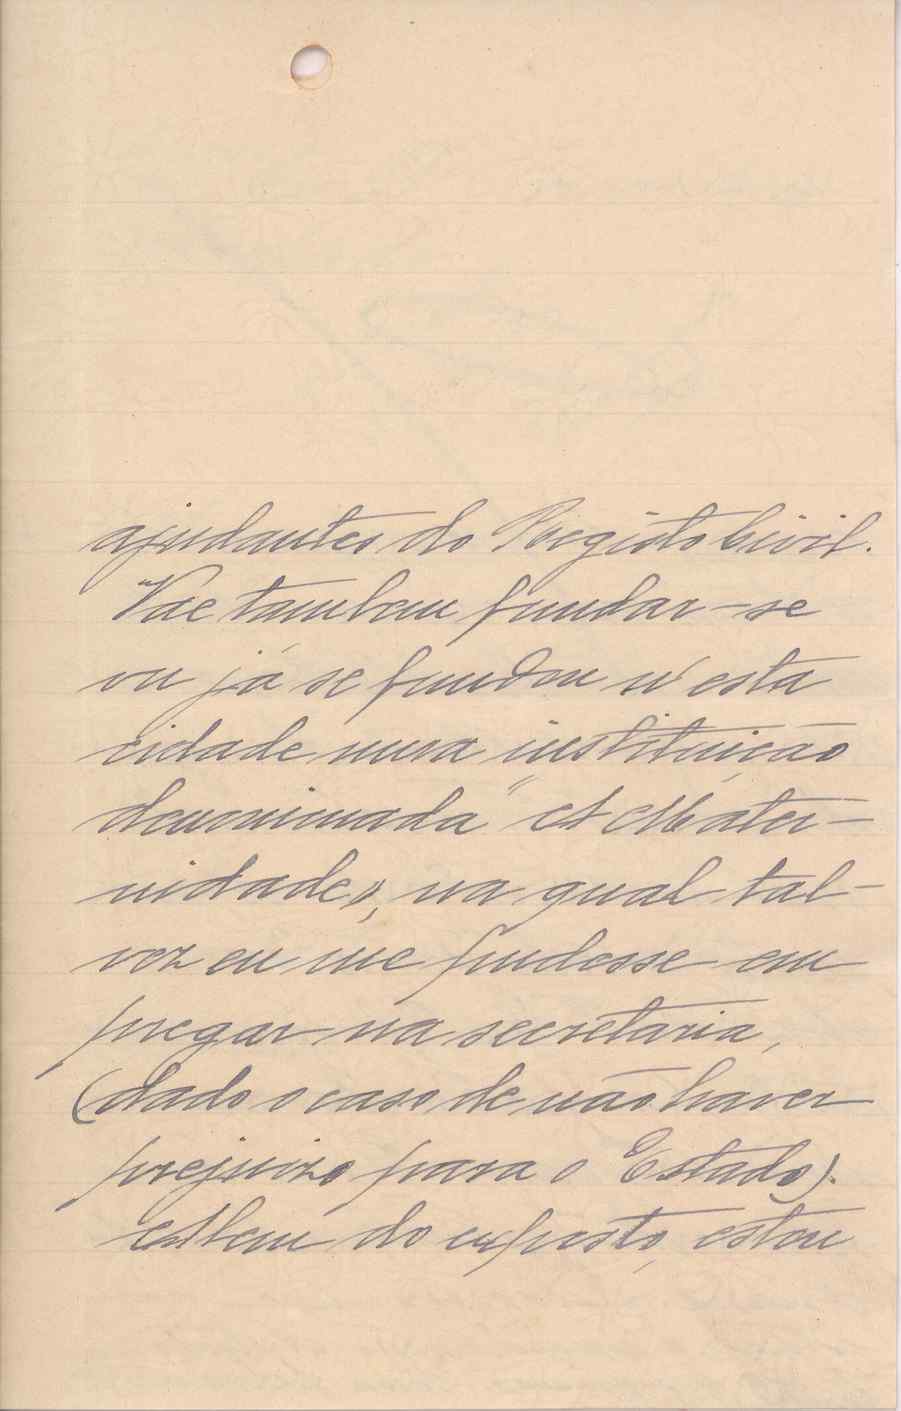 ajudantes do Registo Civil.
Vae tambem fundar-se
ou já se fundou n'esta
cidade uma instituição
denominada "A Mater-
nidade", na qual tal-
vez eu me pudesse em
pregar na secretaria,
(dado o caso de não haver
prejuizo para o Estado).
Alem do exposto, estou